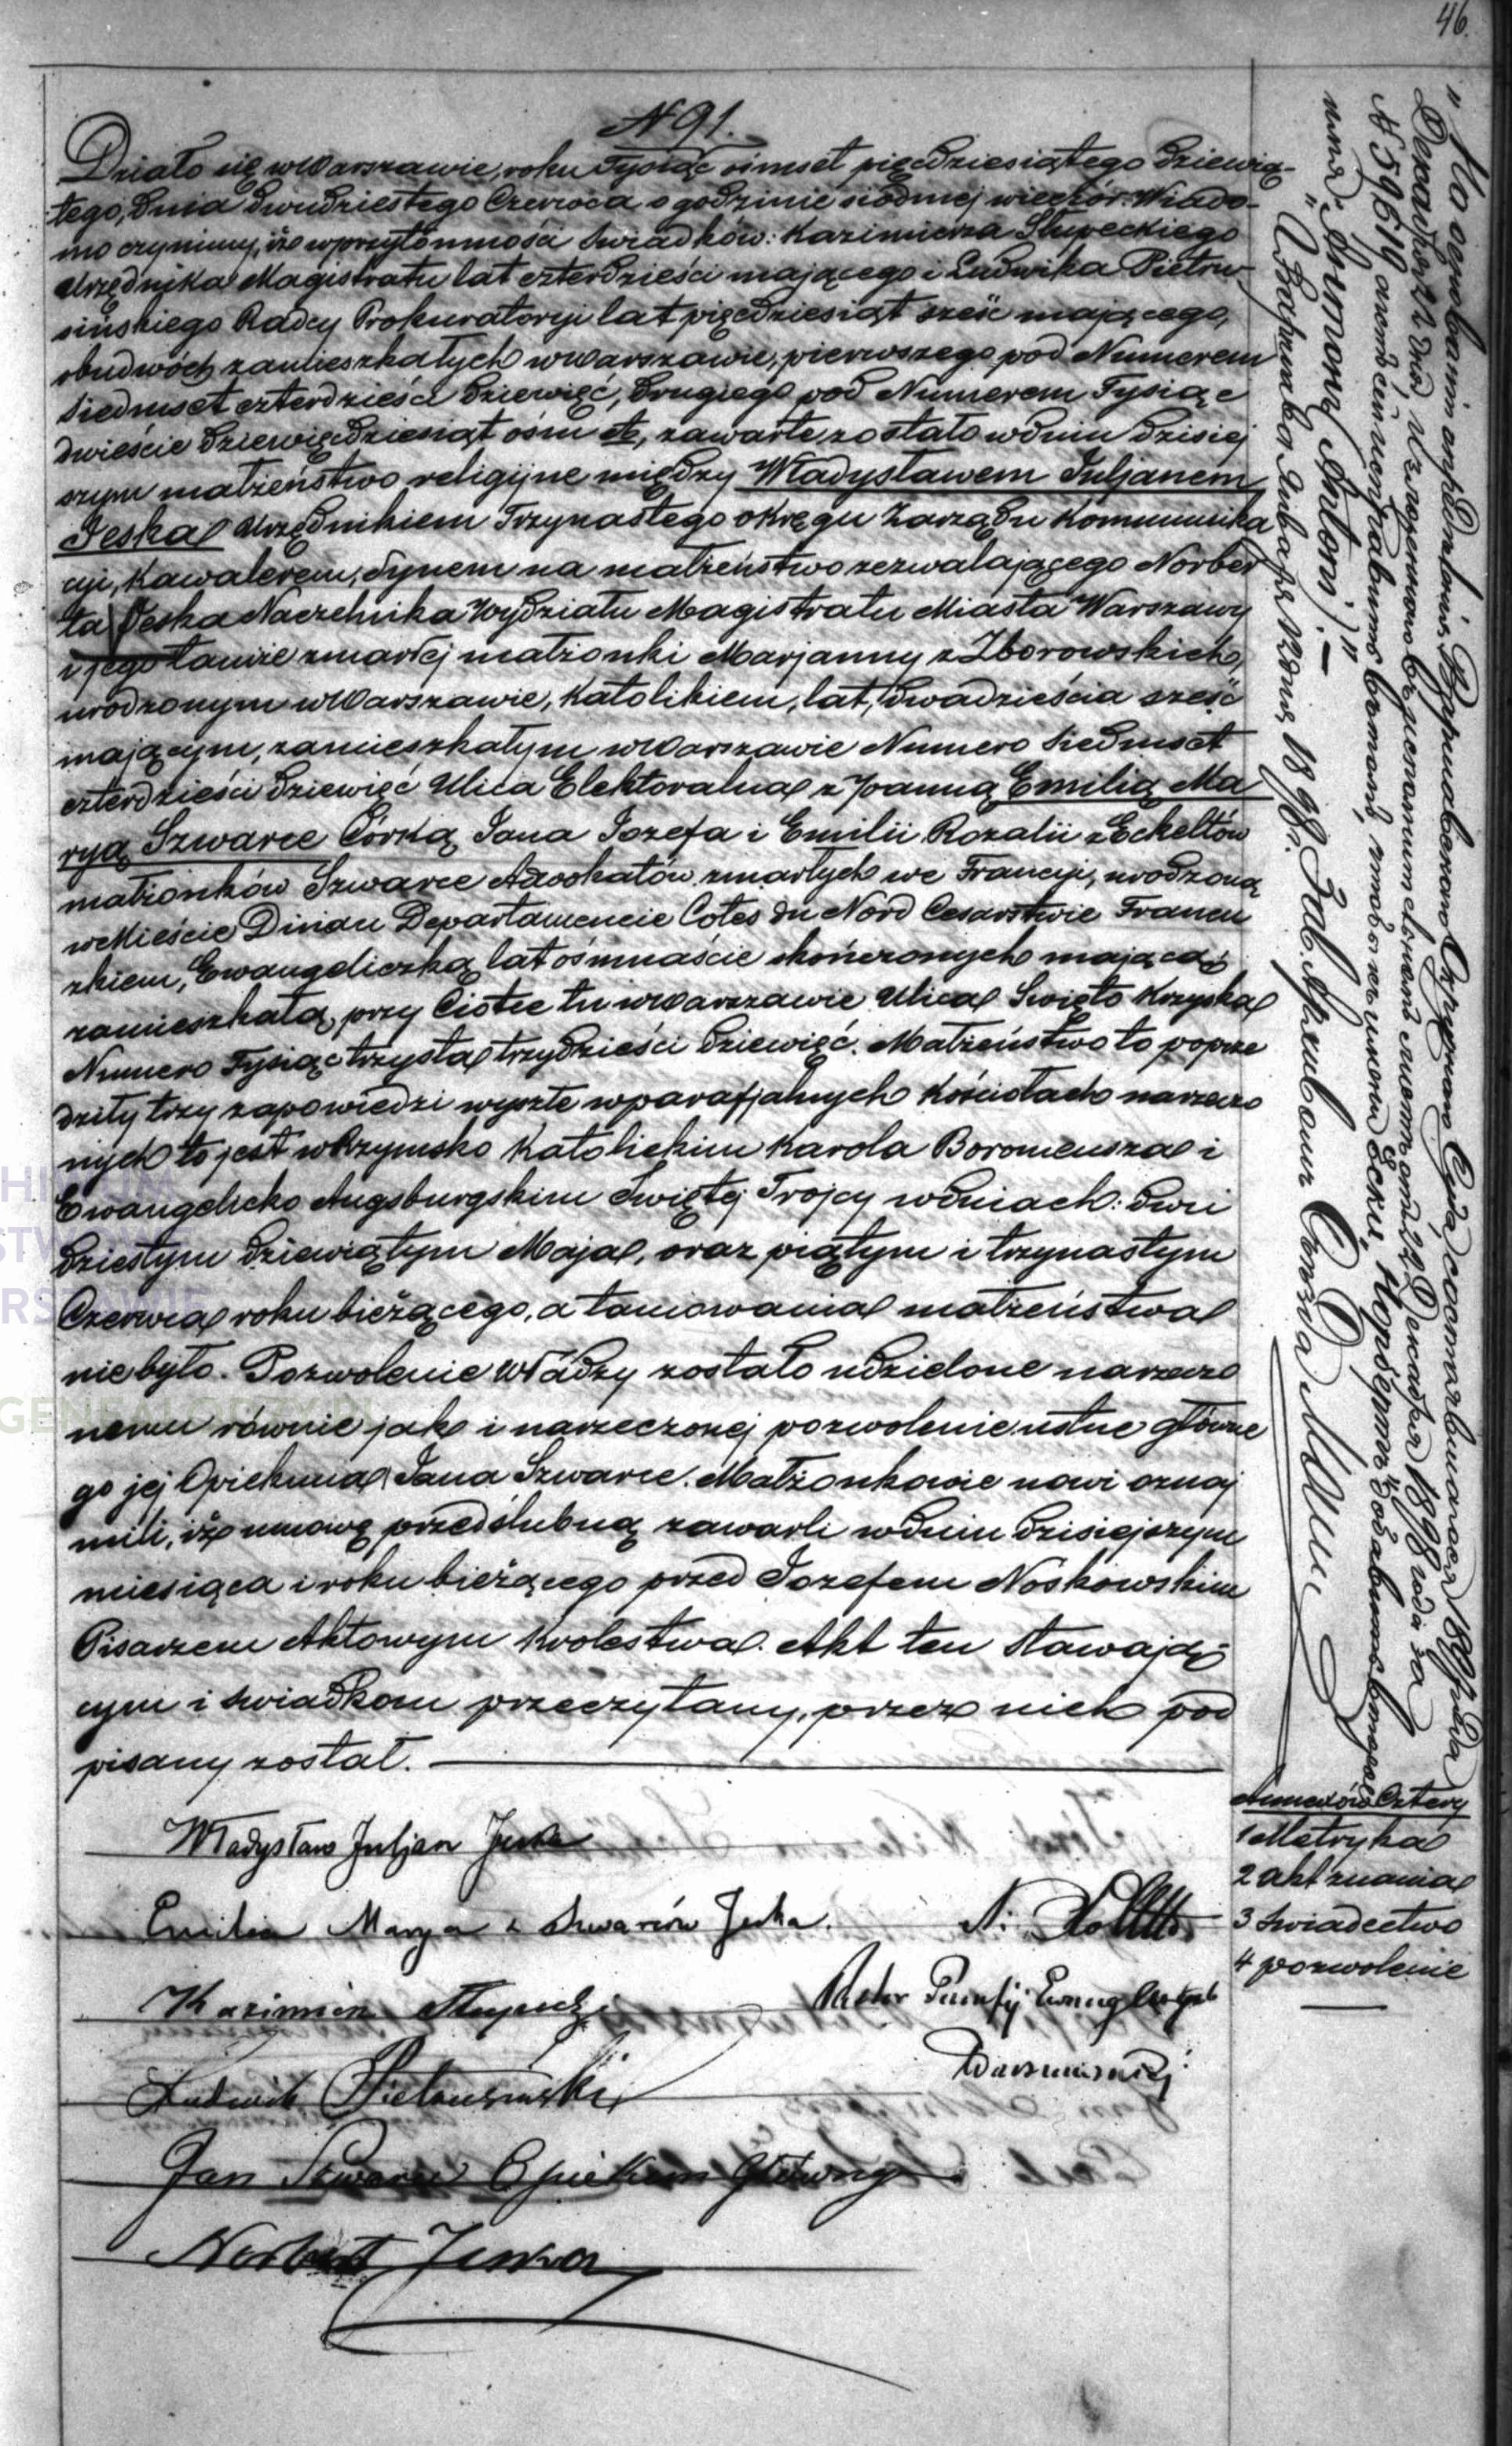 46.
N 91.
Działo się w Warszawie, roku Tysiąc ośmset pięćdziesiątego dziewią-
tego, dnia dwudziestego Czerwca o godzinie siódmej wieczór. Wiado-
mo czynimy, iż w przytomności świadków: Kazimierza Słupeckiego
Urzędnika Magistratu lat czterdzieści mającego i Ludwika Pietru-
sińskiego Radcy Prokuratoryi lat pięćdziesiąt sześć mającego,
obudwóch zamieszkałych w Warszawie, pierwszego pod Numerem
siedmset czterdzieści dziewięć, drugiego pod Numerem Tysiąc
dwieście dziewięćdziesiąt ośm, zawarte zostało w dniu dzisiej
szym małżeństwo religijne między Władysławem Juljanem
Jeska Urzędnikiem Trzynastego okręgu Zarządu Kommunika
cyi, Kawalerem, synem na małżeństwo zezwalającego Norber
ta Jeska Naczelnika Wydziału Magistratu Miasta Warszawy
i jego tamże zmarłej małżonki Marjanny z Zborowskich,
urodzonym w Warszawie, Katolikiem, lat, dwadzieścia sześć
mającym, zamieszkałym w Warszawie Numero siedmset
czterdzieści dziewięć Ulica Elektoralna z Joanną Emilią Ma
ryą Szwarce Córką Jana Jozefa i Emilii Rozalii z Eckeltów
małżonków Szwarce Adwokatów zmarłych we Francyi, urodzoną
w Mieście Dinan Departamencie Cotes du Nord Cesarstwie Francu
zkiem, Ewangeliczką lat ośmnaście skończonych mającą
zamieszkałą przy Ciotce tu w Warszawie Ulica Swięto Krzyska
Numero Tysiąc trzysta trzydzieści dziewięć. Małżeństwo to poprze
dziły trzy zapowiedzi wyszłe w parafjalnych Kościołach narzeczo
nych to jest w Rzymsko Katolickim Karola Boromeusza i
Ewangelicko Augsburgskim Świętej Trojcy w dniach: dwu
dziestym dziewiątym Maja, oraz piątym i trzynastym
Czerwca roku bieżącego, a tamowania małżeństwa
nie było. Pozwolenie Władzy zostało udzielone narzeczo
nemu równie jak i narzeczonej pozwolenie ustne główne
go jej Opiekuna Jana Szwarce. Małżonkowie nowi oznaj
mili, iż umowę przedślubną zawarli w dniu dzisiejszym
miesiąca i roku bieżącego przed Jozefem Noskowskim
Pisarzem Aktowym Krolestwa. Akt ten Stawają
cym i świadkom przeczytany, przez nich pod
pisany został.
Władysław Juljan Jeska
Emilia Marya z Szwarców Jeska.
Kazimierz Słupecki
Ludwik Pietrusiński
Jan Szwarce Opiekun Główny
Norbert Jeska
Pastor Parafij Ewang Augsb
Warszawskiej
„На основаніи опредѣленія Варшавскаго Окружнаго Суда, состоявшагося 1898 года
Декабря 22 дня, изложеннаго въ
№ 59614 актъ сей исправленъ
имя: „Антонъ (Antoni)"
„Варшава Января 12 дня 1898.
Annexów Cztery
1 Metryka
2 akt znania
3 swiadectwo
4 pozwolenie